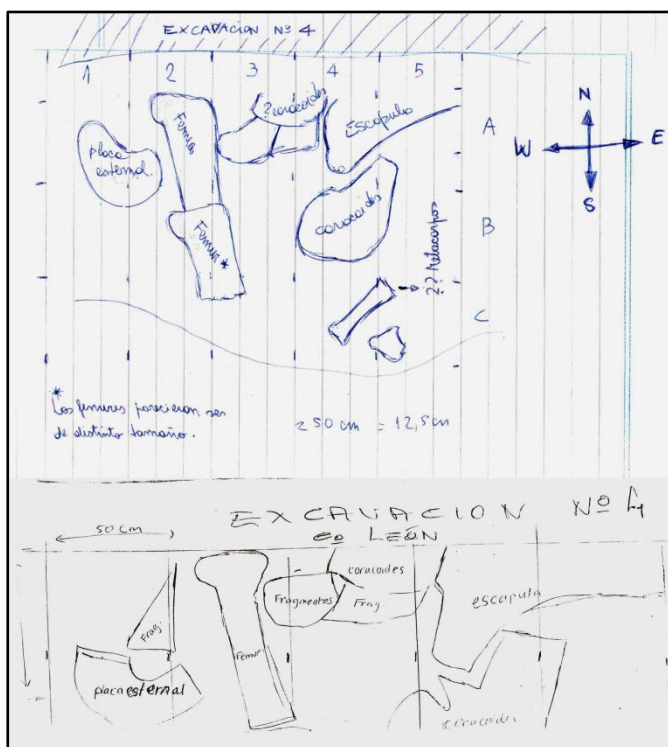 EXCAVACION Nº 4
1 2 3 4 5
A
B
C
N
W E
S
placa
esternal
Femur
Femur *
?coracoids
Escapula
coracoids!
?? Metacarpos
*
Los femures parecieran ser
de distinto tamaño.
50 cm = 12,5cm
EXCAVACION Nº 4
Cº LEÓN
50cm
Frag.
placa esternal
Femur
Fragmentos
coracoides
Frag.
escapula
coracoides